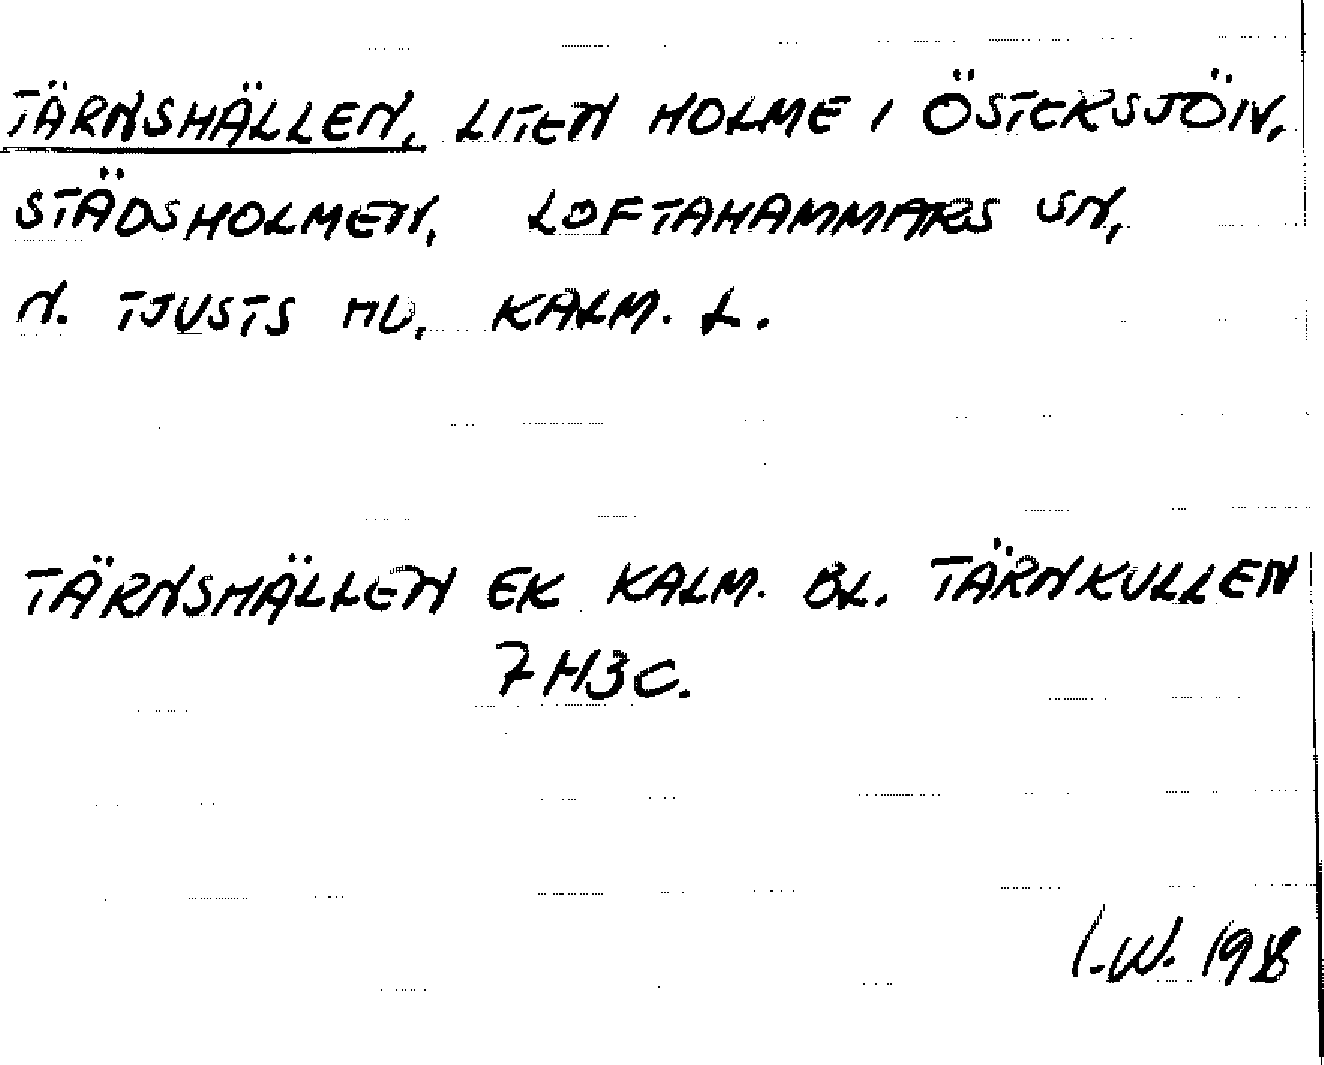 TÄRNSHÄLLEN, LITEN HOLME I ÖSTERSJÖN,
STÄDSHOLMEN, LOFTAHAMMARS SN,
N. TJUSTS HD, KALM. L.
TÄRNSHÄLLEN EK KALM. BL. TÄRNKULLEN
7H3C.
I.W. 198